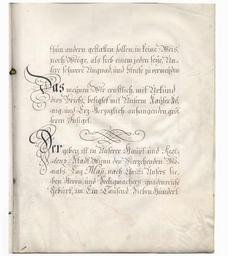 thun andern gestatten sollen, in keine Weis,
noch Weege, als lieb einem jeden seye, Un-
sere schwere Ungnad, und Straffe zu vermeyden
Das meynen Wir ernstlich, mit Urkund
dies Briefs, besiglet mit Unserm Kayser-Kö-
nig- und Erz-Herzoglich anhangenden grö-
seren Insigel.
Der
geben ist in Unserer Haupt- und Resi-
denz-Stadt Wienn den Vierzehenden Mo-
nats Tag May, nach Christi Unsers lie-
ben Herrn, und Seeligmachers gnadenreiche
Geburt, im Ein-Tausend Sieben Hundert